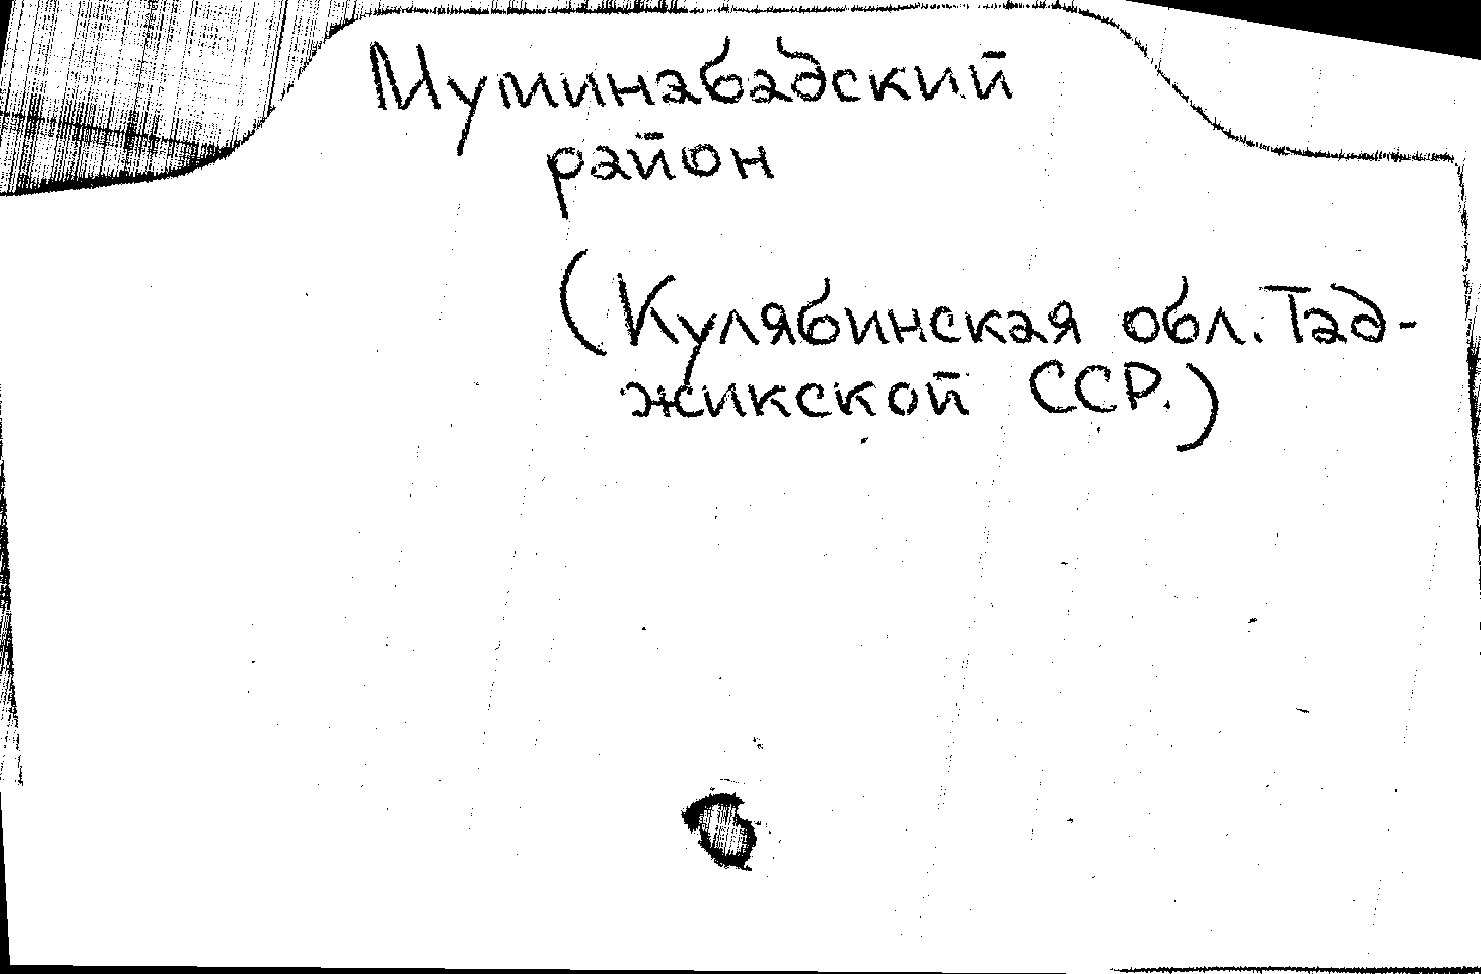 Муминабадский
район
(Кулябинская обл. Тад-
жикской ССР.)